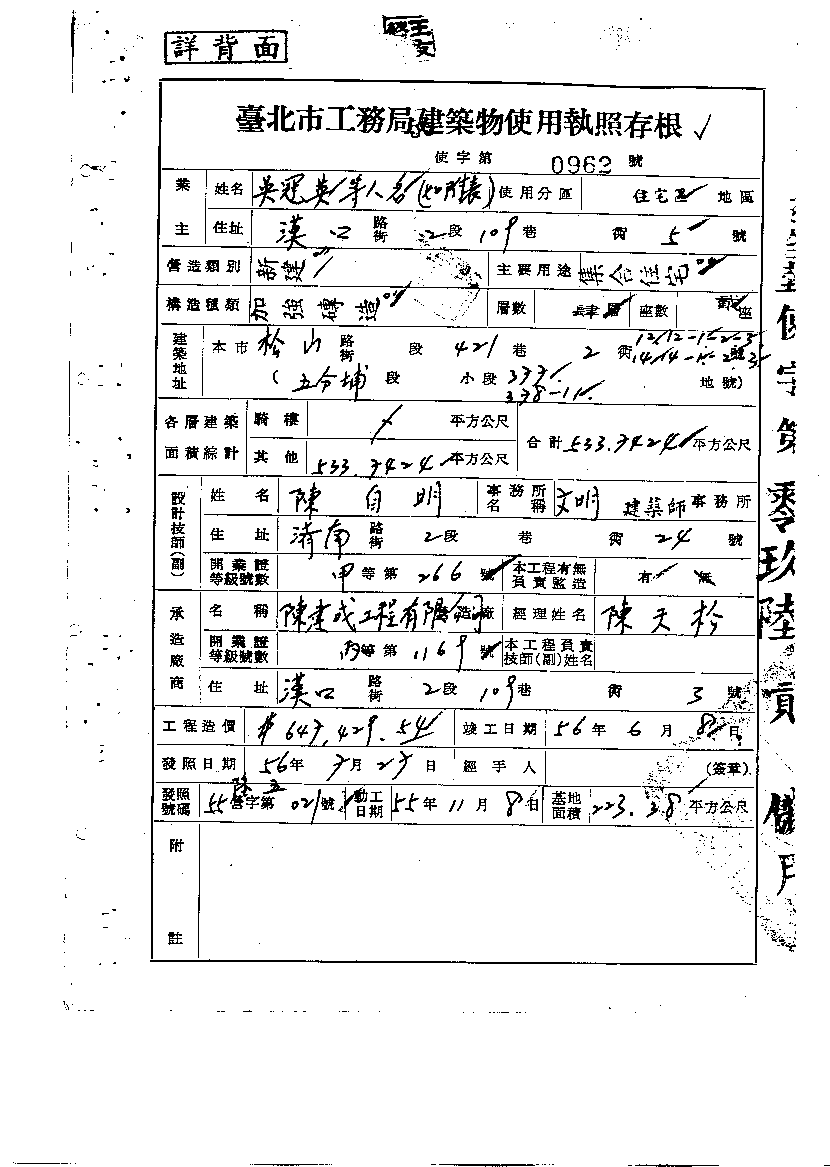 詳背面
臺北市工務局建築物使用執照存根 ✓
使字第 0962 號
業主 姓名 吳冠英等人名(如附表) 使用分區 住宅區 地區
住址 漢口 路街 2段 109巷 衖 5 號
營造類別 新建 主要用途 集合住宅
構造種類 加強磚造 層數 肆層 座數 座
建築地址 本市 松山 路街 段 421 巷 2 衖 12.12-1-2-3 14.14-1-2號3
(五分埔 段 小段 337. 338-11. 地號)
各層建築面積綜計 騎樓 平方公尺 合計 533.7424 平方公尺
其他 533.7424 平方公尺
設計技師(副) 姓名 陳自明 事務所名稱 文明 建築師事務所
住址 濟南 路街 2段 巷 衖 24 號
開業證等級號數 甲等第 266 號 本工程有無負責監造 有 無
承造廠商 名稱 陳建成工程有限公司 營造廠 經理姓名 陳天松
開業證等級號數 丙等第 1169 號 本工程負責技師(副)姓名
住址 漢口 路街 2段 109巷 衖 3 號
工程造價 $647,429.54 竣工日期 56年6月8日
發照日期 56年7月27日 經手人 (簽章)
發照號碼 55營字第021號 動工日期 55年11月8日 基地面積 223.38 平方公尺
附註
使字第零玖陸貳號